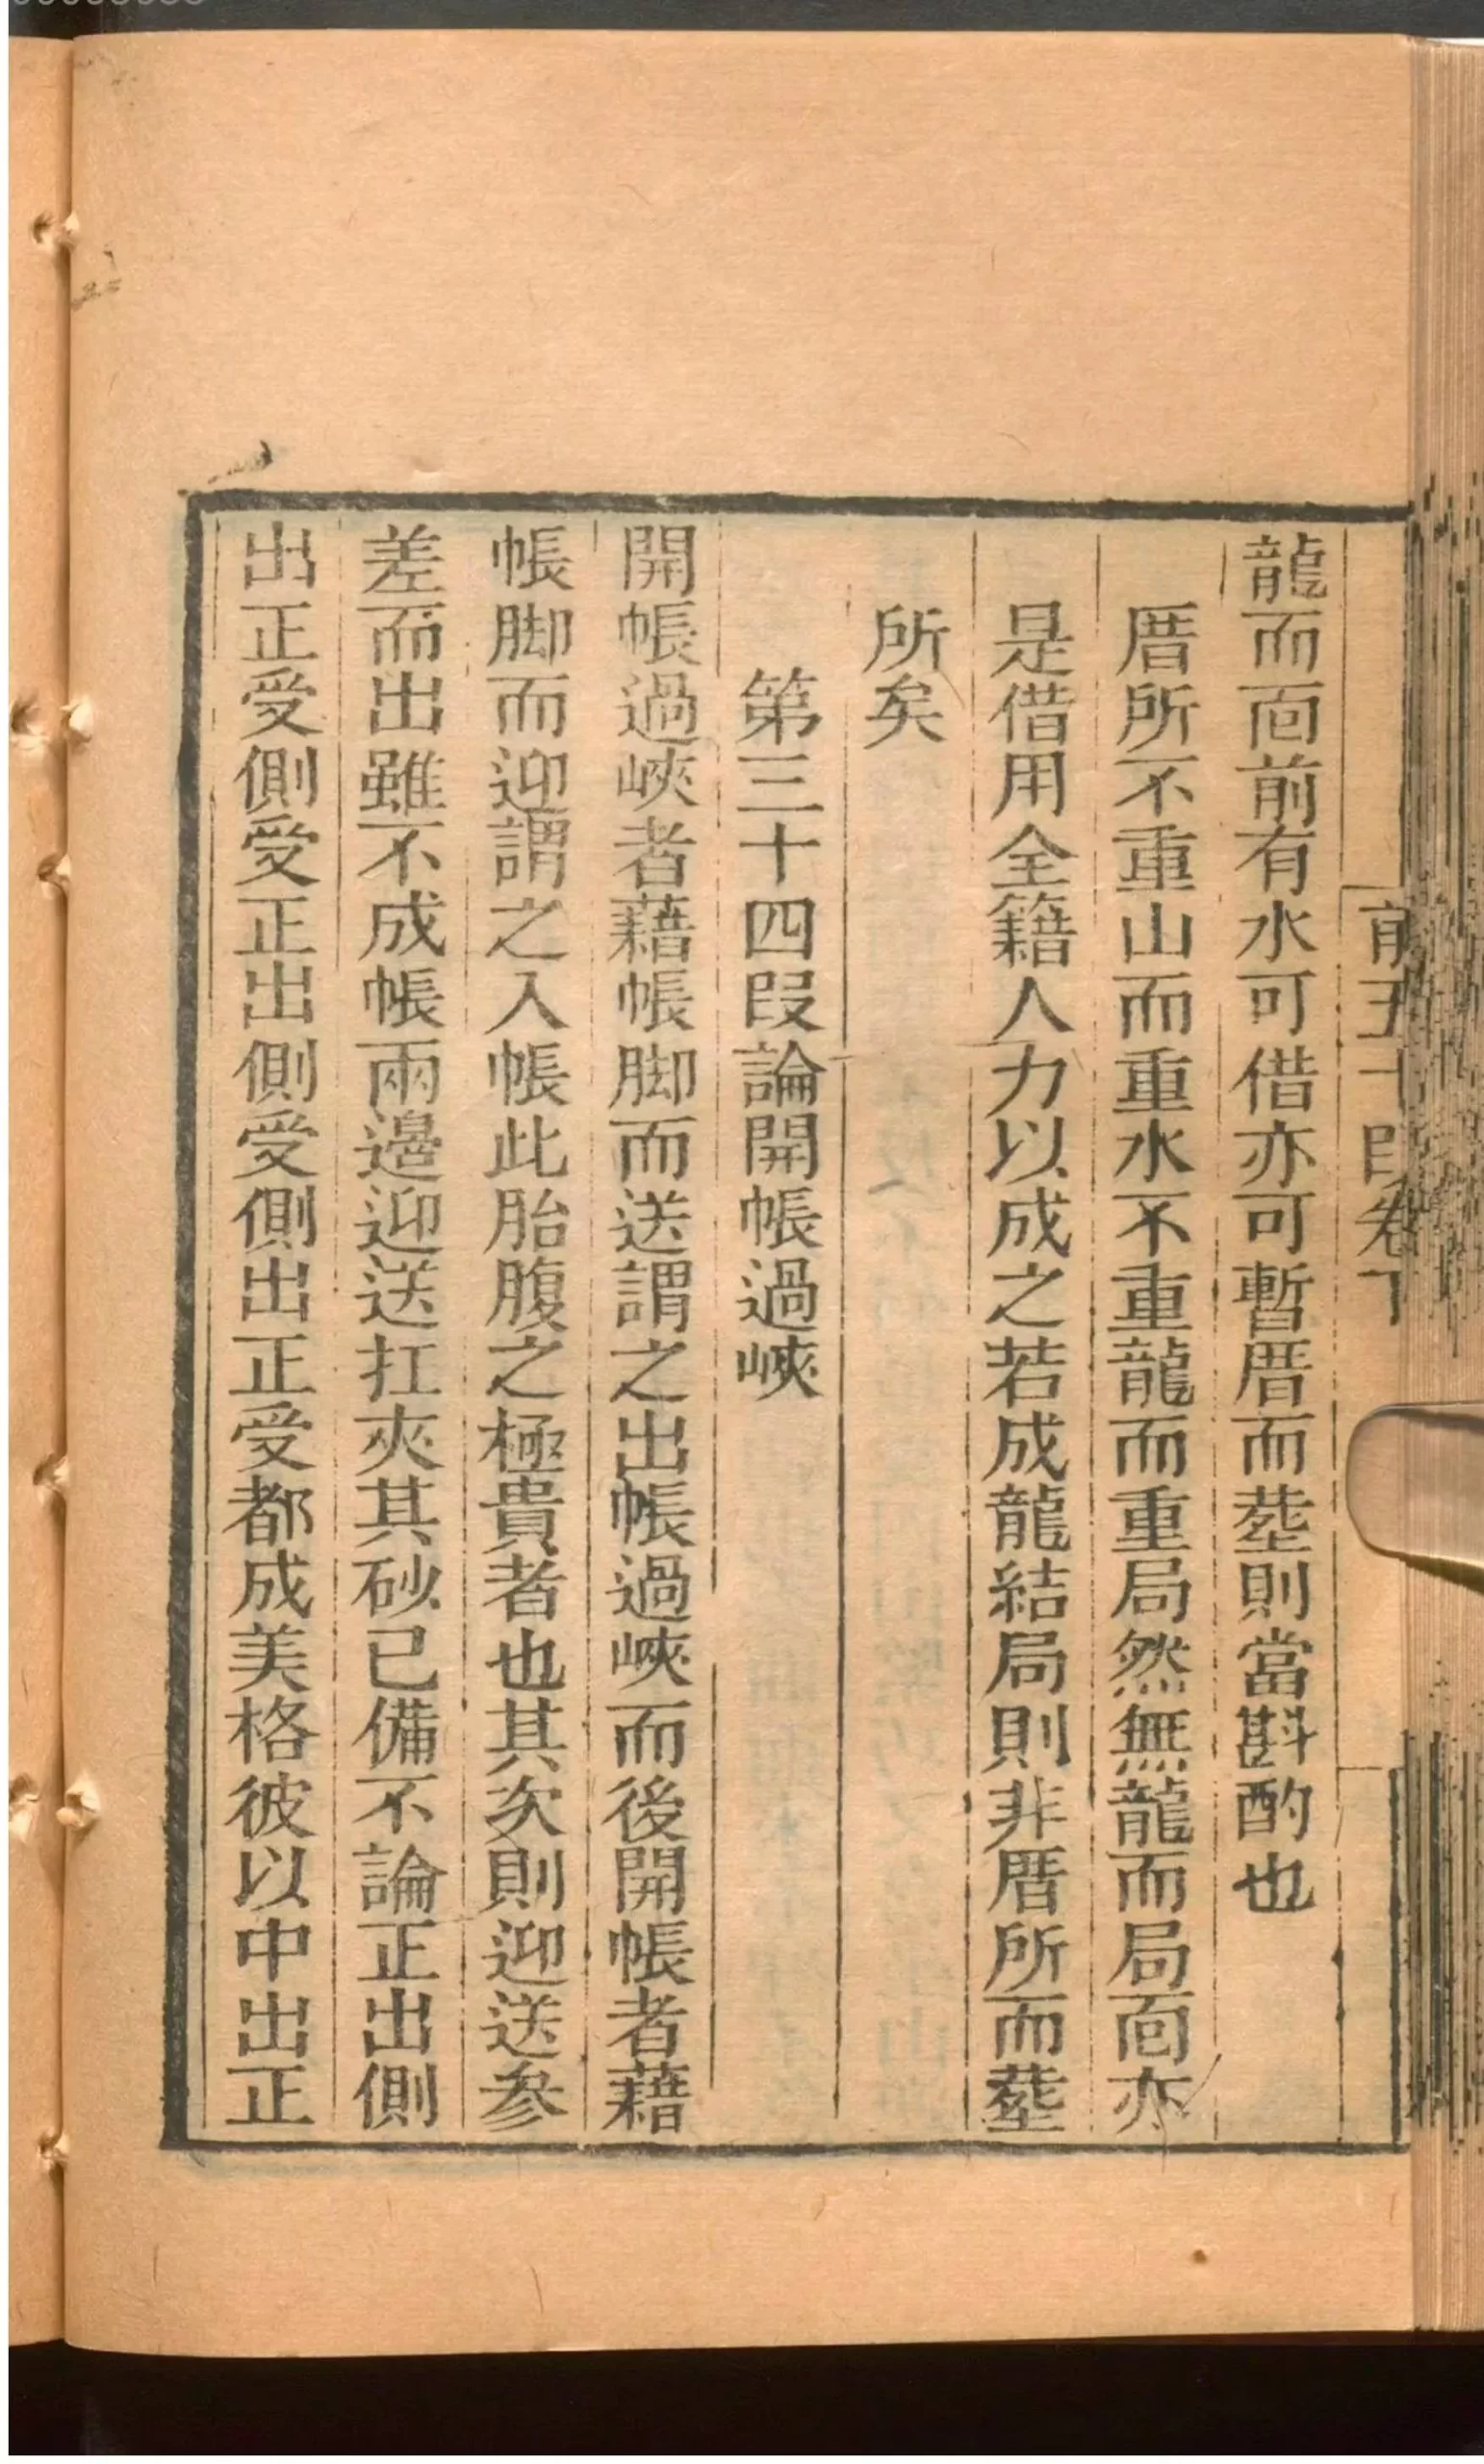 龍而靣前有水可借亦可暫厝而塟則當斟酌也
厝所不重山而重水不重龍而重局然無龍而局靣亦
是借用全籍人力以成之若成龍結局則非厝所而塟
所矣
第三十四段論開帳過峽
開帳過峽者藉帳脚而送謂之出帳過峽而後開帳者藉
帳脚而迎謂之入帳此胎腹之極貴者也其次則迎送參
差而出雖不成帳兩邊迎送扛夾其砂已備不論正出側
出正受側受正出側受側出正受都成美格彼以中出正